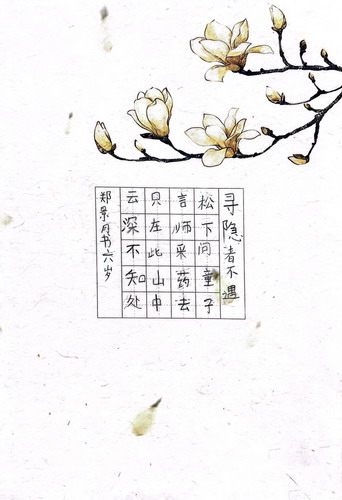 寻隐者不遇
松下问童子
言师采药去
只在此山中
云深不知处
郑景月书六岁